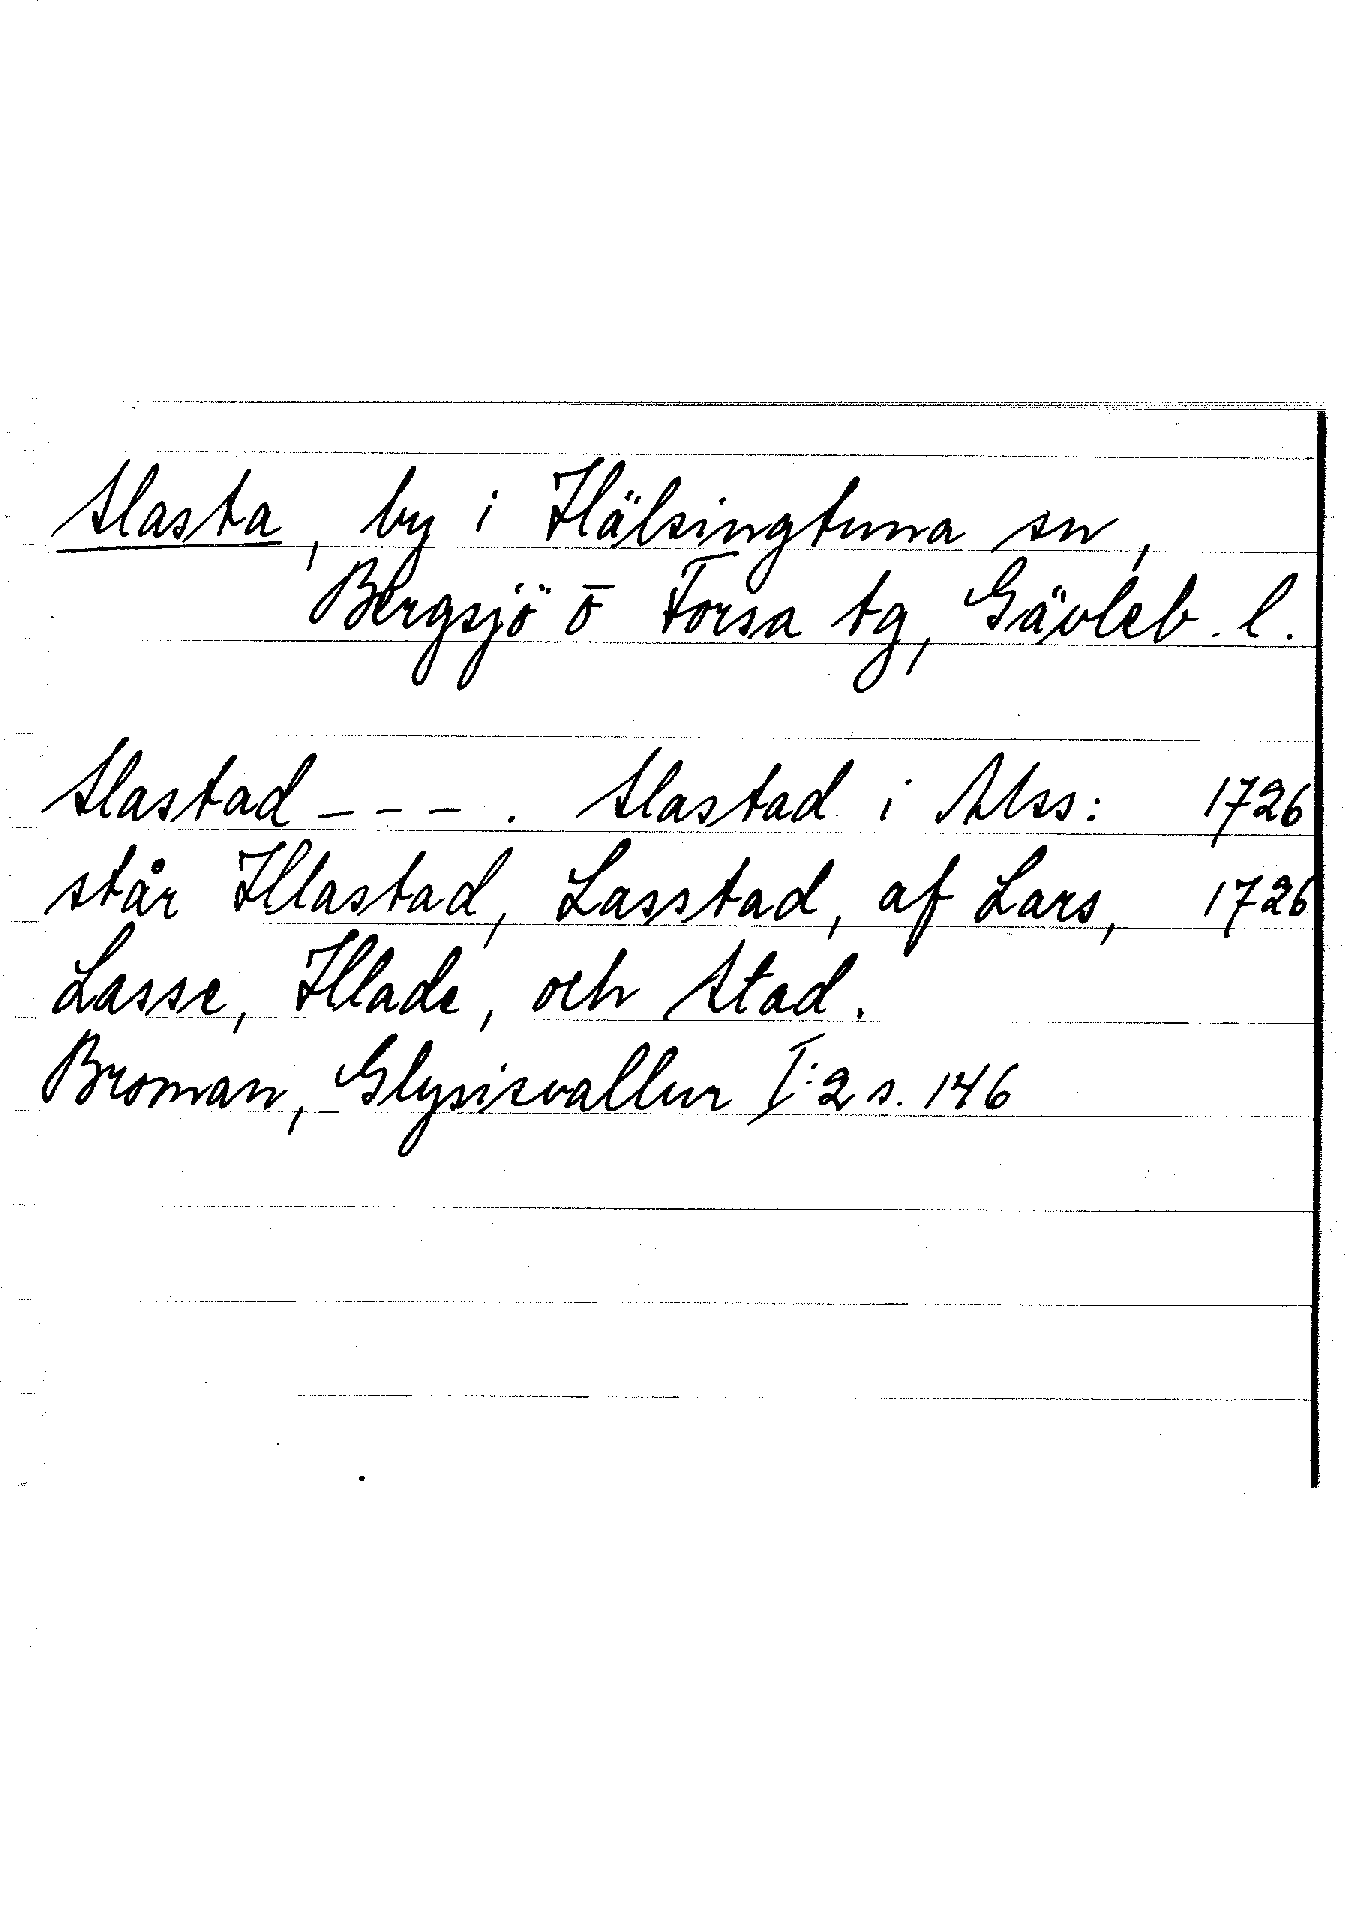 Slasta, by i Hälsingtuna sn,
Bergsjö o̅ Forsa tg, Gävleb. l.
Slastad - - - . Slastad i Mss: 1726
står Hlastad, Lasstad, af Lars, 1726
Lasse, Hlade, och Stad.
Broman, Glysisvallur I:2 s. 146